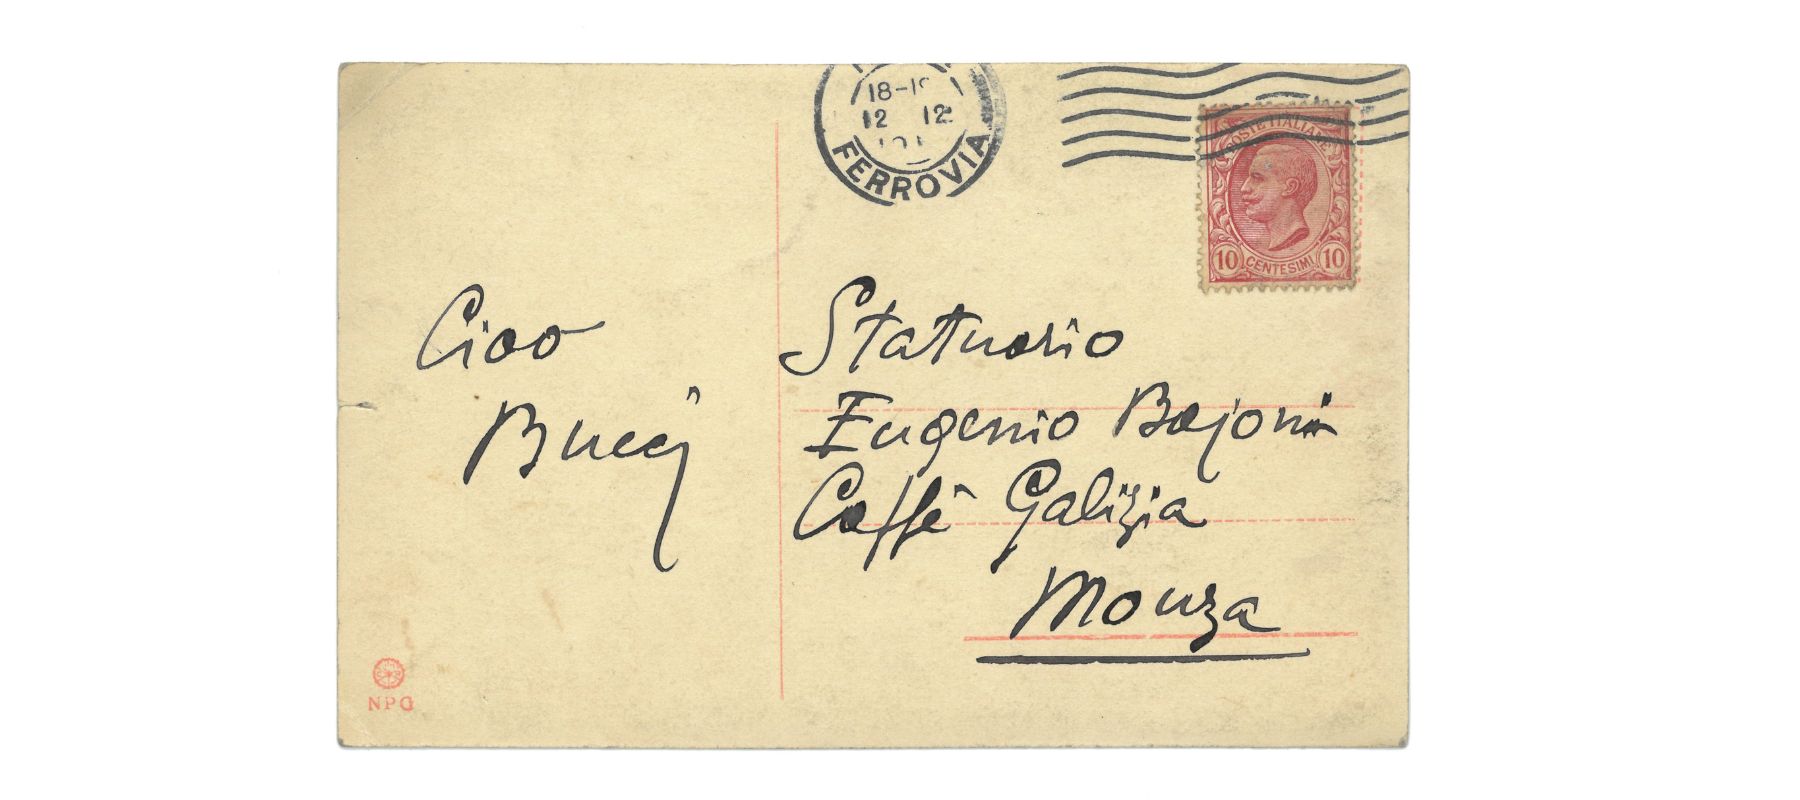 18-19
12 12
FERROVIA
POSTE ITALIANE
10 CENTESIMI 10
Ciao
Bucci
Statuario
Eugenio Bajoni
Caffè Galizia
Monza
NPG